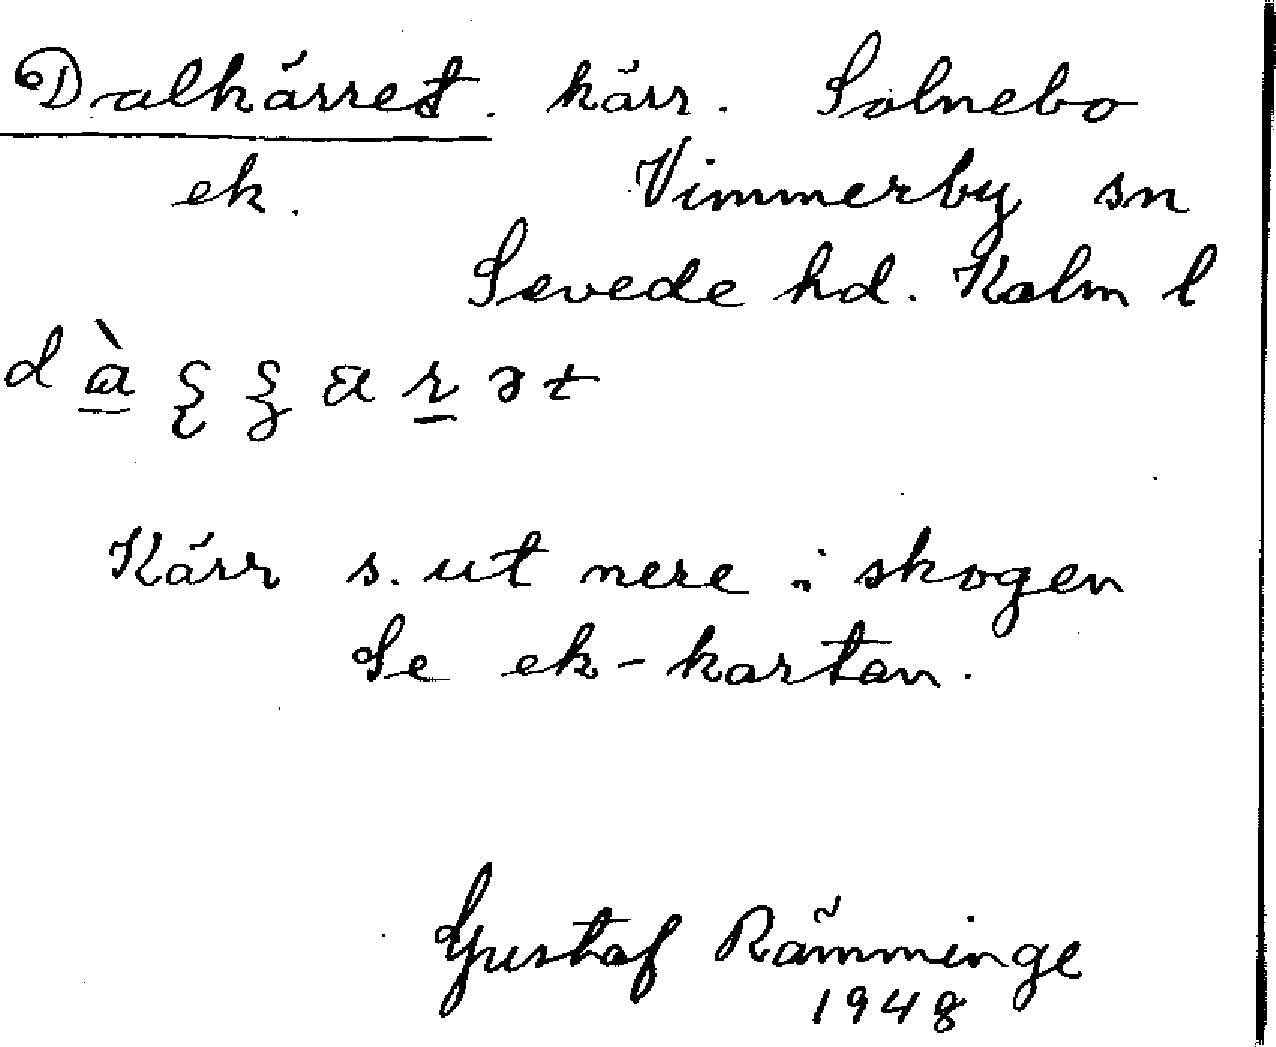 Dalkärret. kärr. Solnebo
ek. Vimmerby sn
Sevede hd. Kalm l
Kärr s. ut nere i skogen
Se ek-kartan.
Gustaf Rämminge
1948